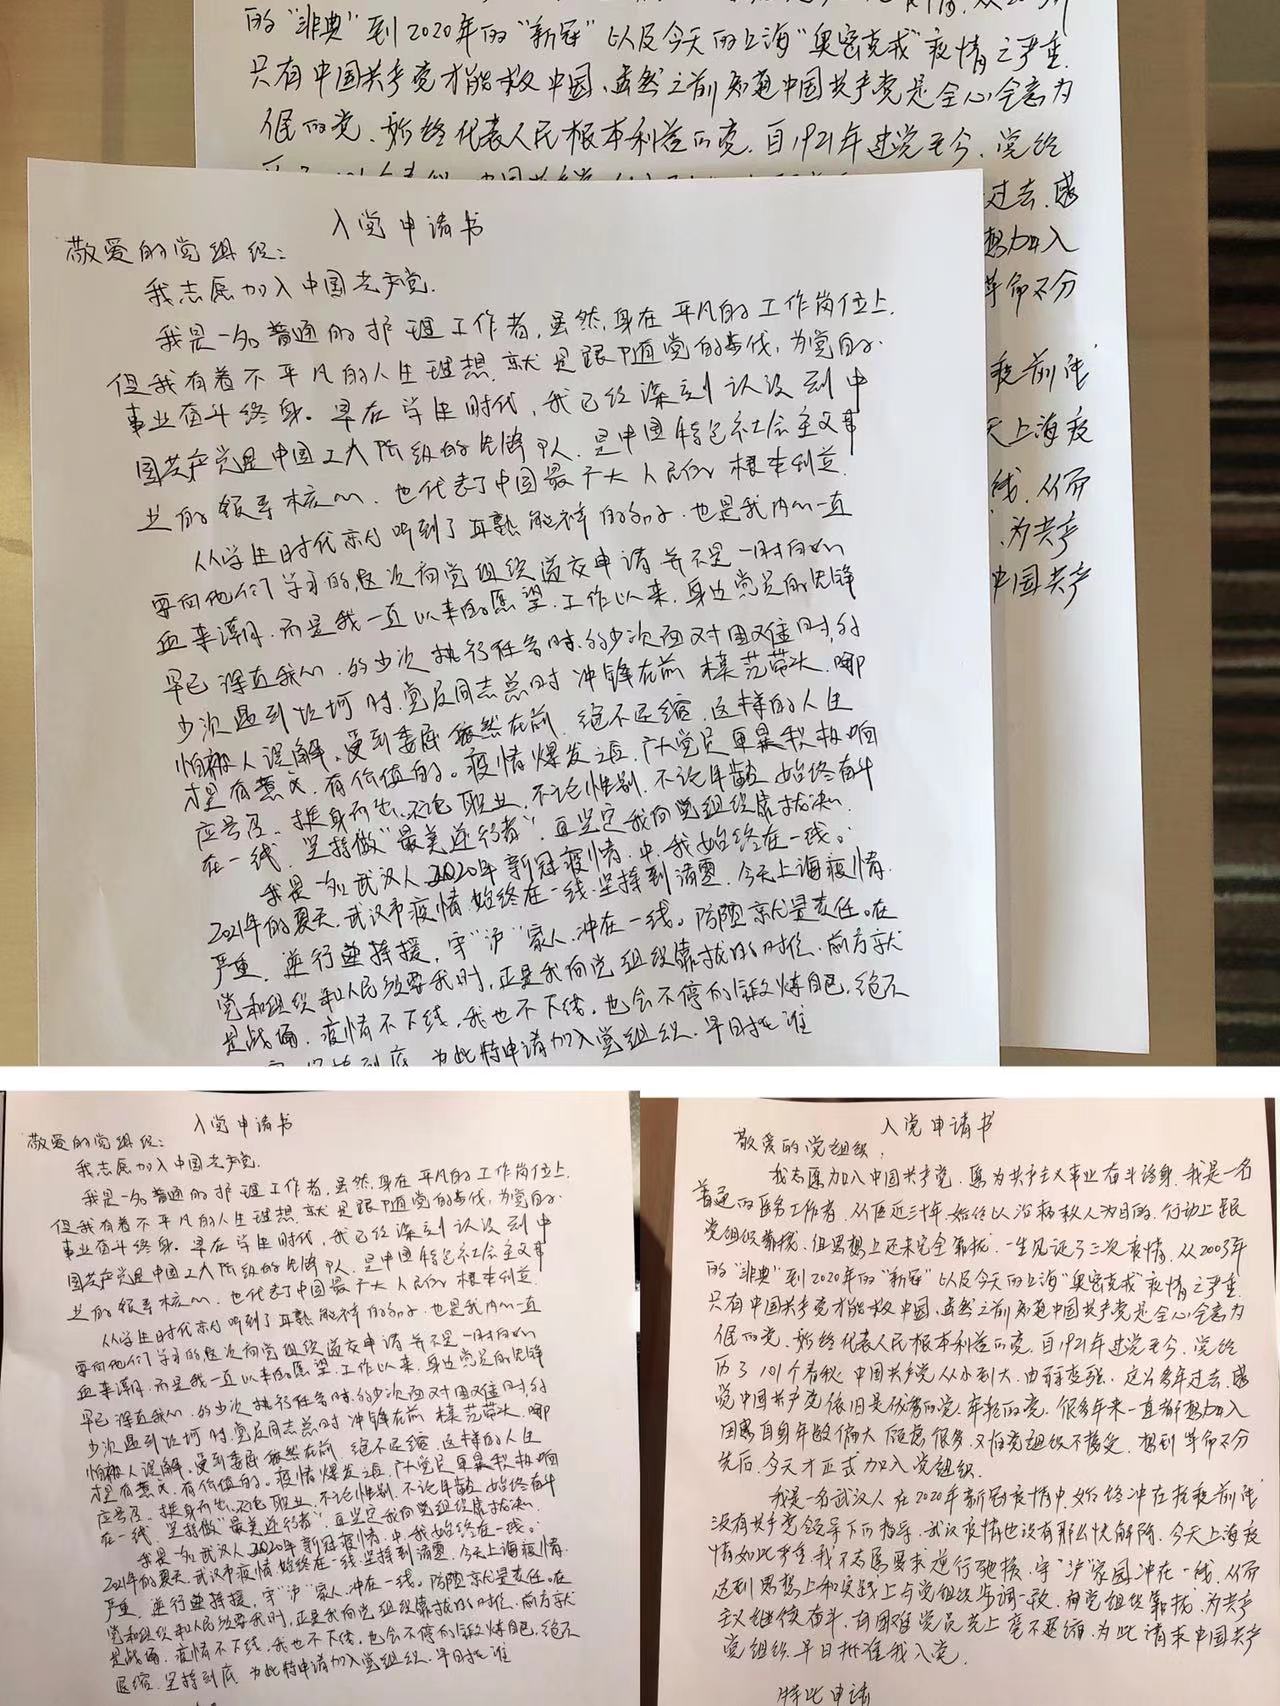 的“非典”到2020年的“新冠”以及今天的上海“奥密克戎”疫情之严重.
只有中国共产党才能救中国、虽然之前知道中国共产党是全心全意为
民的党、始终代表人民根本利益的党.自1921年建党至今、党经
过去.感
想加入
革命不分
疫前线
天上海疫
线.从而
为共产
中国共产
入党申请书
敬爱的党组织:
我志愿加入中国共产党.
我是一名普通的护理工作者,虽然,身在平凡的工作岗位上.
但我有着不平凡的人生理想.就是跟随党的步伐,为党的
事业奋斗终身。早在学生时代,我已经深刻认识到中
国共产党是中国工人阶级的先锋队.是中国特色社会主义事
业的领导核心.也代表了中国最广大人民的根本利益.
从学生时代就听到了耳熟能详的.也是我内心一直
要向他们学习的,这次向党组织递交申请并不是一时的心
血来潮.而是我一直以来的愿望.工作以来.身边党员的先锋
早已深入我心.多少次执行任务时.多少次面对困难时,多
少次遇到坎坷时.党员同志总时冲锋在前模范带头.哪
怕被人误解.受到委屈依然在前.绝不退缩.这样的人生
才是有意义.有价值的。疫情爆发之后,广大党员更是积极响
应号召.挺身而出.不论职业.不论性别.不论年龄始终奋斗
在一线.坚持做“最美逆行者”.更坚定我向党组织靠拢决心.
我是一名武汉人2020年新冠疫情.中.我始终在一线。
2021年的夏天.武汉市疫情.始终在一线坚持到清零.今天上海疫情.
严重.逆行驰援.守“沪”家人.冲在一线。防疫就是责任。在
党和组织和人民需要我时,正是我向党组织靠拢的时候.前方就
是战场.疫情不下线.我也不下线.也会不停的锻炼自己.绝不
坚持到底.为此特申请加入党组织.早日批准
入党申请书
敬爱的党组织:
我志愿加入中国共产党.
我是一名普通的护理工作者,虽然,身在平凡的工作岗位上.
但我有着不平凡的人生理想.就是跟随党的步伐,为党的
事业奋斗终身。早在学生时代,我已经深刻认识到中
国共产党是中国工人阶级的先锋队.是中国特色社会主义事
业的领导核心.也代表了中国最广大人民的根本利益.
从学生时代就听到了耳熟能详的.也是我内心一直
要向他们学习的,这次向党组织递交申请并不是一时的心
血来潮.而是我一直以来的愿望.工作以来.身边党员的先锋
早已深入我心.多少次执行任务时.多少次面对困难时,多
少次遇到坎坷时.党员同志总时冲锋在前模范带头.哪
怕被人误解.受到委屈依然在前.绝不退缩.这样的人生
才是有意义.有价值的。疫情爆发之后,广大党员更是积极响
应号召.挺身而出.不论职业.不论性别.不论年龄始终奋斗
在一线.坚持做“最美逆行者”.更坚定我向党组织靠拢决心.
我是一名武汉人2020年新冠疫情.中.我始终在一线。
2021年的夏天.武汉市疫情.始终在一线坚持到清零.今天上海疫情.
严重.逆行驰援.守“沪”家人.冲在一线。防疫就是责任。在
党和组织和人民需要我时,正是我向党组织靠拢的时候.前方就
是战场.疫情不下线.我也不下线.也会不停的锻炼自己.绝不
退缩.坚持到底.为此特申请加入党组织.早日批准
入党申请书
敬爱的党组织:
我志愿加入中国共产党.愿为共产主义事业奋斗终身.我是一名
普通的医务工作者.从医近三十年.始终以治病救人为目的.行动上跟
党组织靠拢.但思想上还未完全靠拢.一生见证了三次疫情.从2003年
的“非典”到2020年的“新冠”以及今天的上海“奥密克戎”疫情之严重.
只有中国共产党才能救中国、虽然之前知道中国共产党是全心全意为
民的党、始终代表人民根本利益的党.自1921年建党至今、党经
历了101个春秋.中国共产党从小到大.由弱变强.这么多年过去.感
觉中国共产党依旧是优秀的党.年轻的党.很多年来一直都想加入
因为自身年龄偏大顾虑很多.又怕党组织不接受.想到革命不分
先后.今天才正式加入党组织.
我是一名武汉人在2020年新冠疫情中.始终冲在抗疫前线
没有共产党领导下的指导.武汉疫情也没有那么快解除.今天上海疫
情如此严重.我不志愿要求逆行驰援.守“沪”家园冲在一线.从而
达到思想上和实践上与党组织步调一致.向党组织靠拢.为共产
主义继续奋斗.有困难党员先上毫不退缩.为此请求中国共产
党组织.早日批准我入党.
特此申请